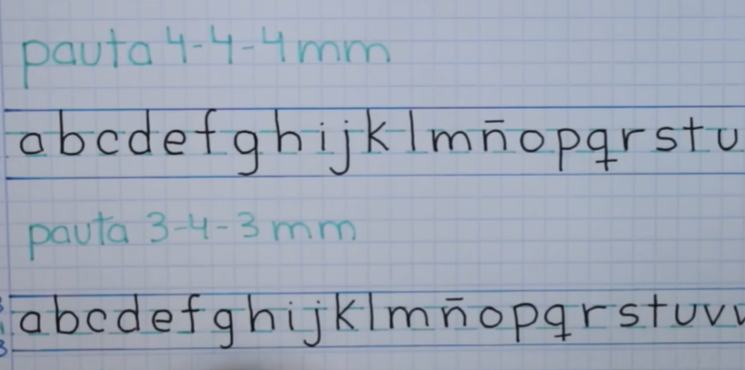 pauta 4-4-4mm
abcdefghijklmñopqrstu
pauta 3-4-3 mm
abcdefghijklmñopqrstuv